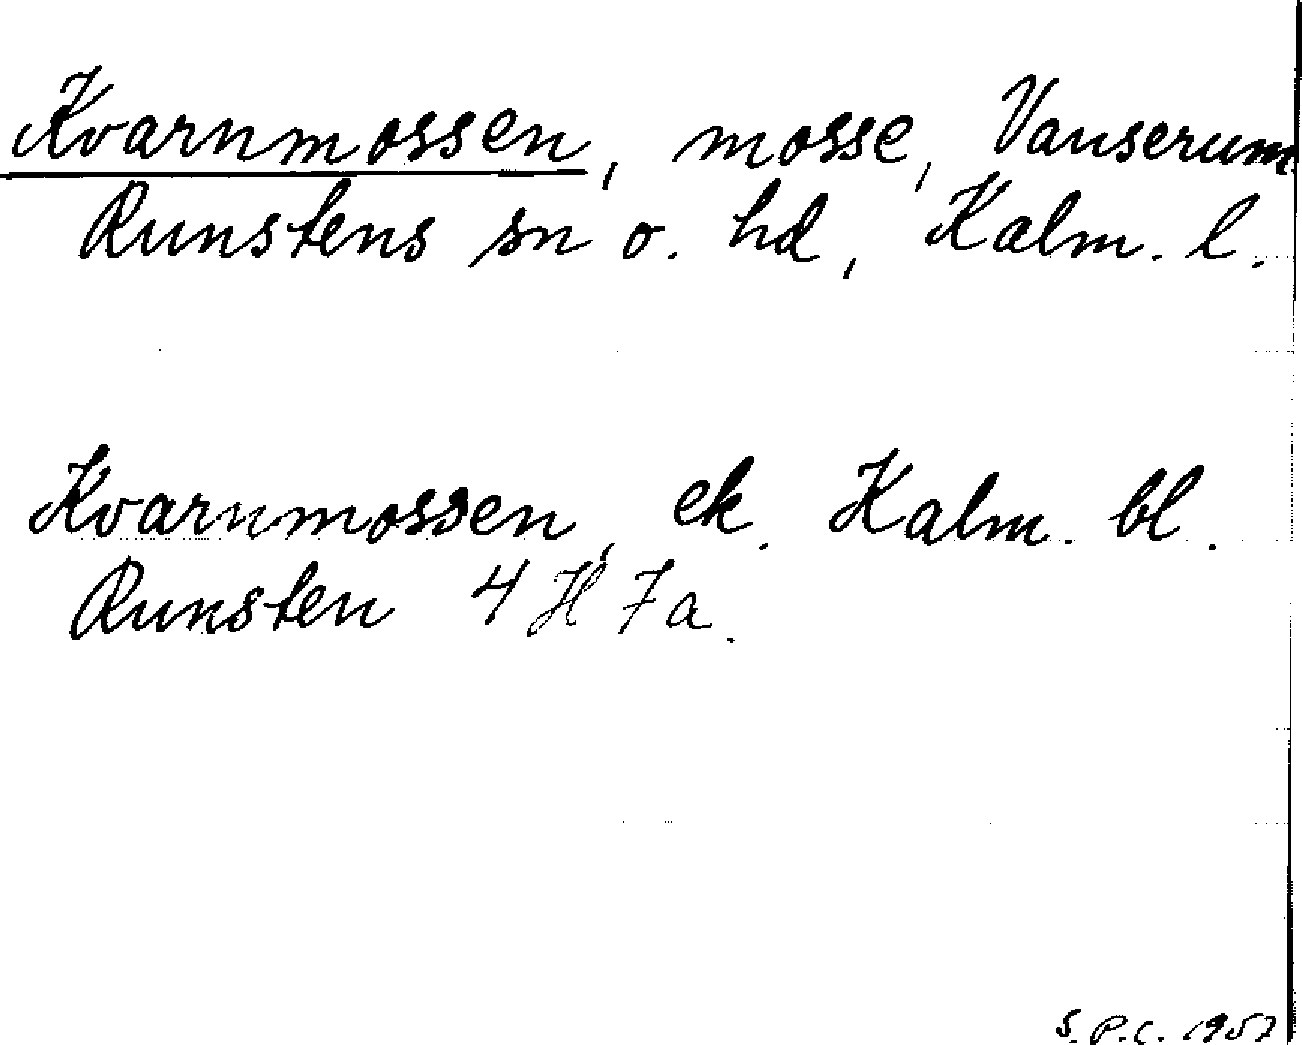 Kvarnmossen, mosse, Vanserum
Runstens sn o. hd, Kalm. l.
Kvarnmossen, ek. Kalm. bl.
Runsten 4 H 7a.
S. P. C. 1957